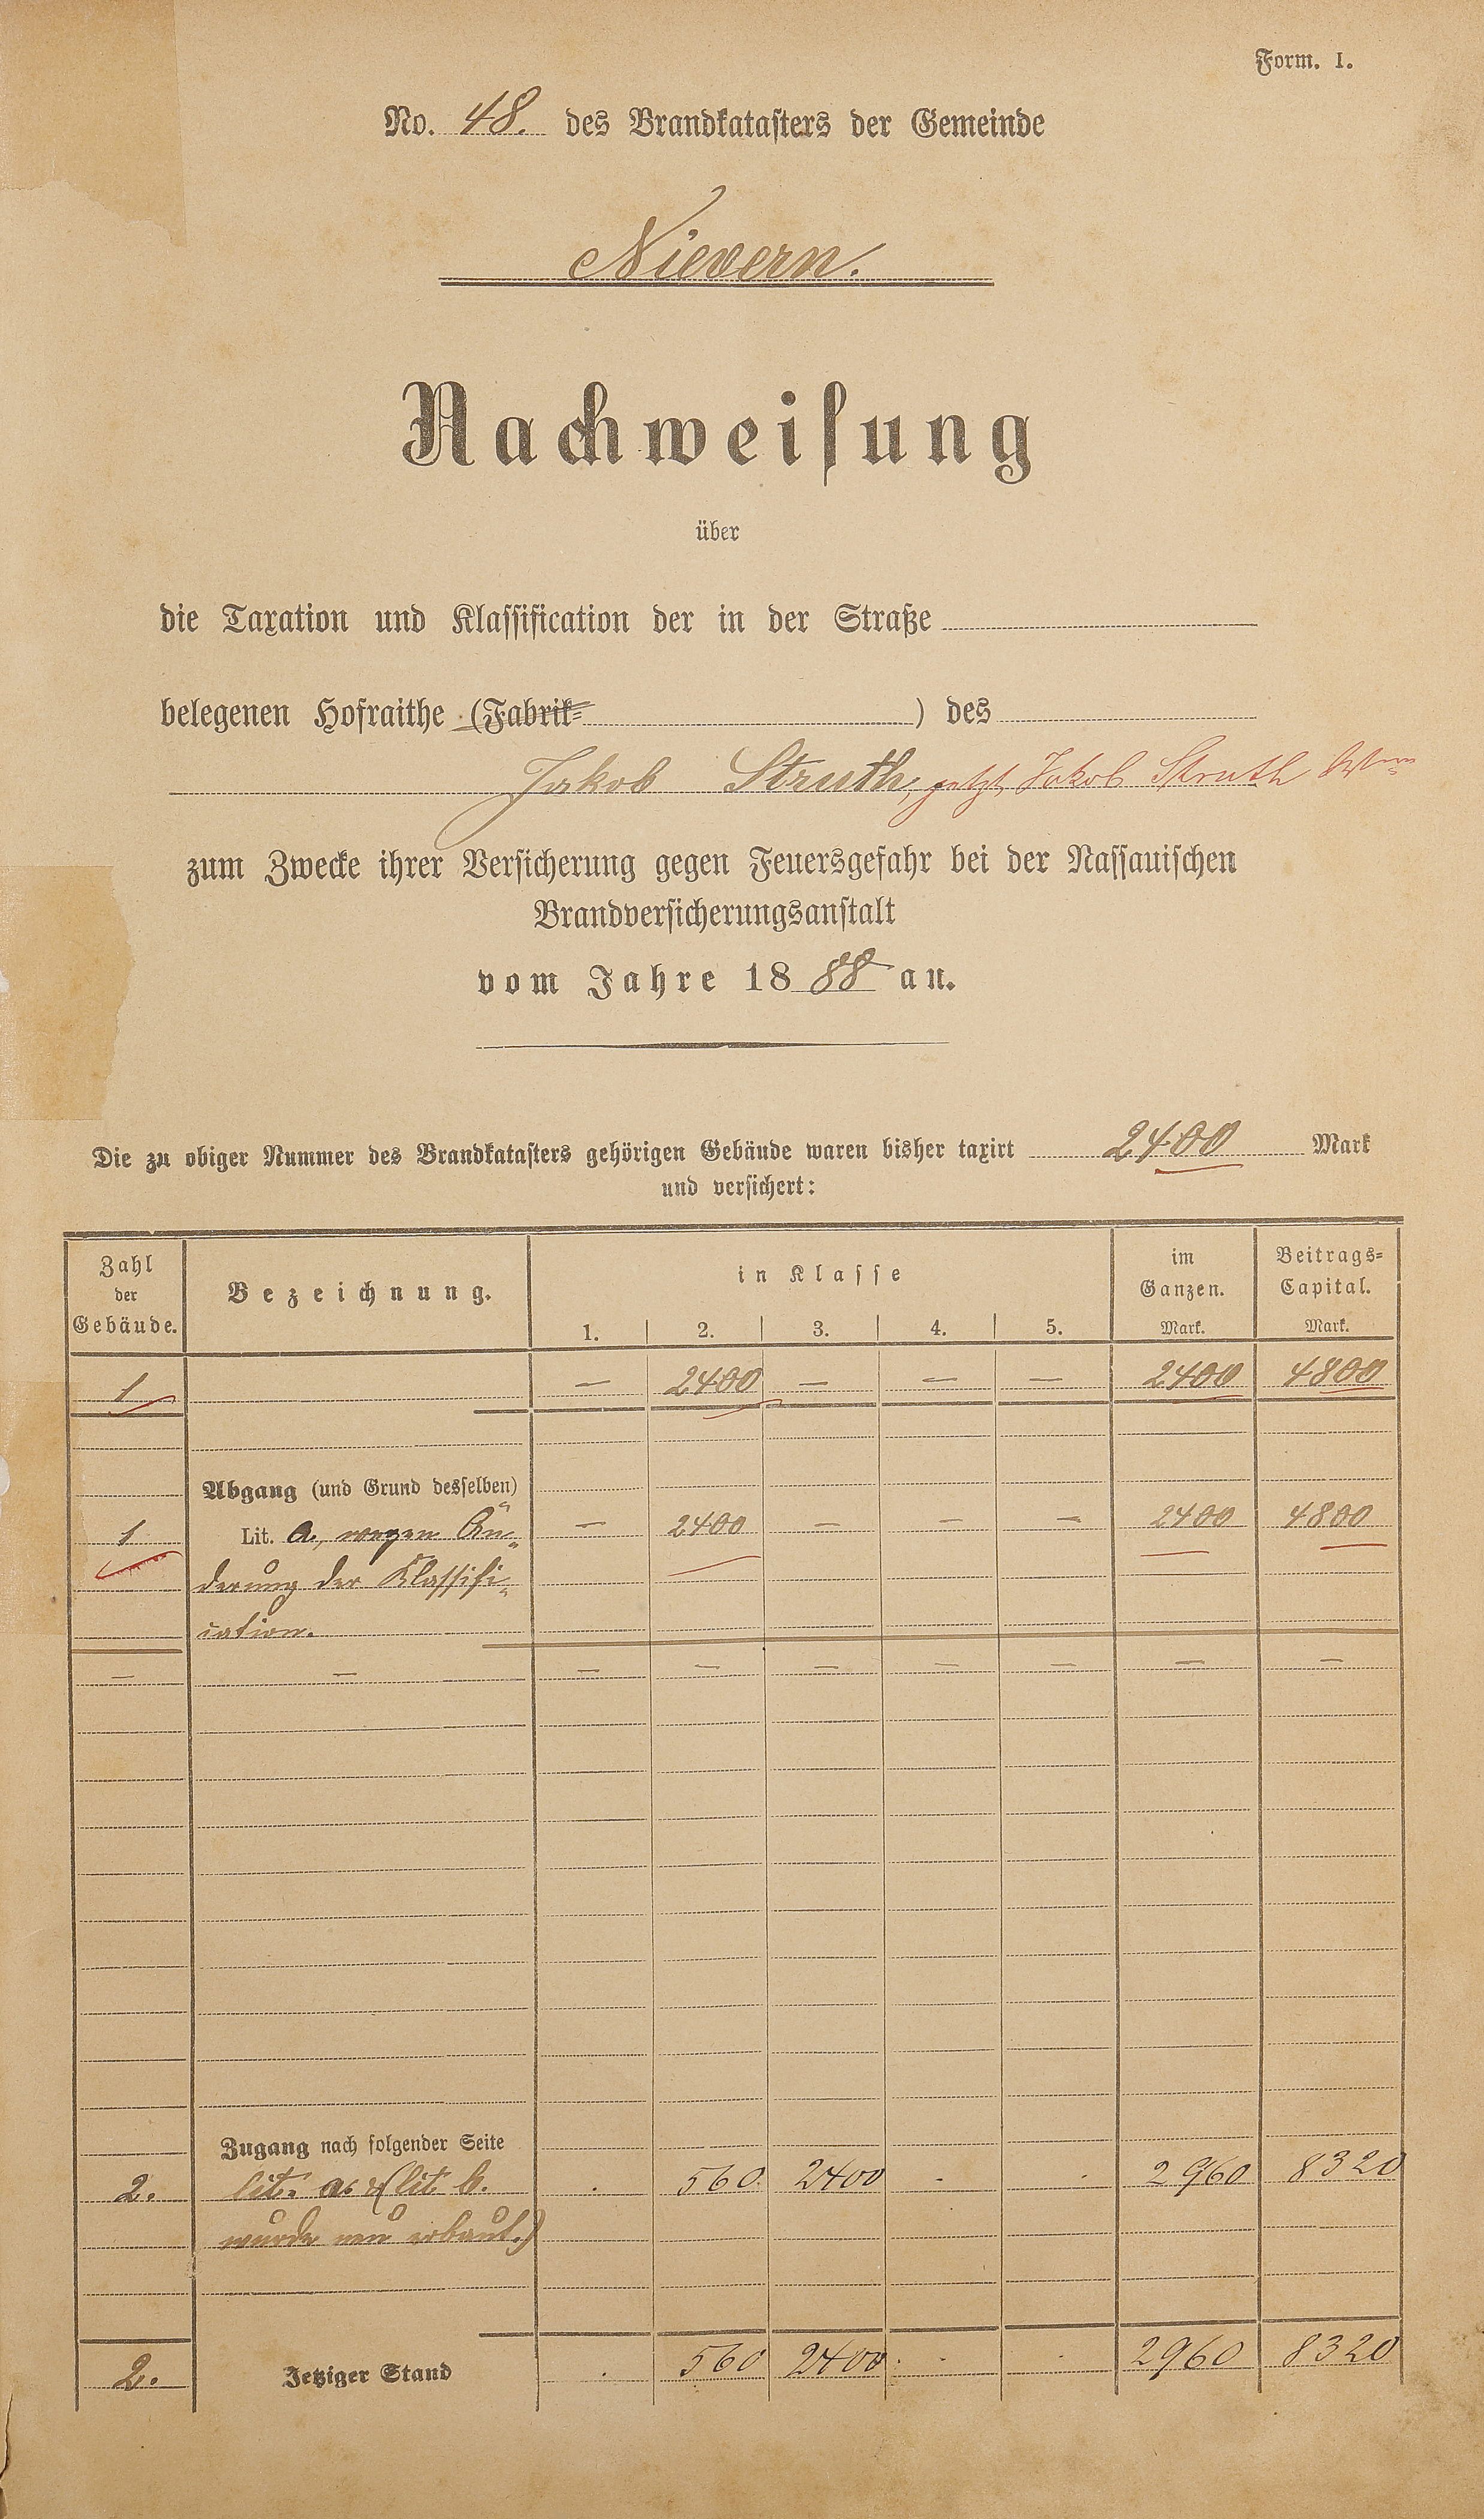 Form. 1.
No. 48. des Brandkatasters der Gemeinde
Nievern.
Nachweisung
über
die Taxation und Klassification der in der Straße
belegenen Hofraithe (Fabrik- ) des
Jakob Struth, jetzt Jakob Struth
zum Zwecke ihrer Versicherung gegen Feuersgefahr bei der Nassauischen
Brandversicherungsanstalt
vom Jahre 1888 an.
Die zu obiger Nummer des Brandkatasters gehörigen Gebäude waren bisher taxirt 2400 Mark
und versichert:
Zahl der Gebäude. Bezeichnung. in Klasse im Ganzen. Mark. Beitrags-Capital. Mark.
1. 2. 3. 4. 5.
1 — 2400 — — — 2400 4800
Abgang (und Grund desselben)
1 Lit. a, wegen Än- — 2400 — — — 2400 4800
derung der Klassifi-
cation.
— — — — — — — — —
Zugang nach folgender Seite
2. lit. a. & (lit b. . 560. 2400 . . 2960 8320
wurde neu erbaut.)
2. Jetziger Stand . 560 2400 . . 2960 8320